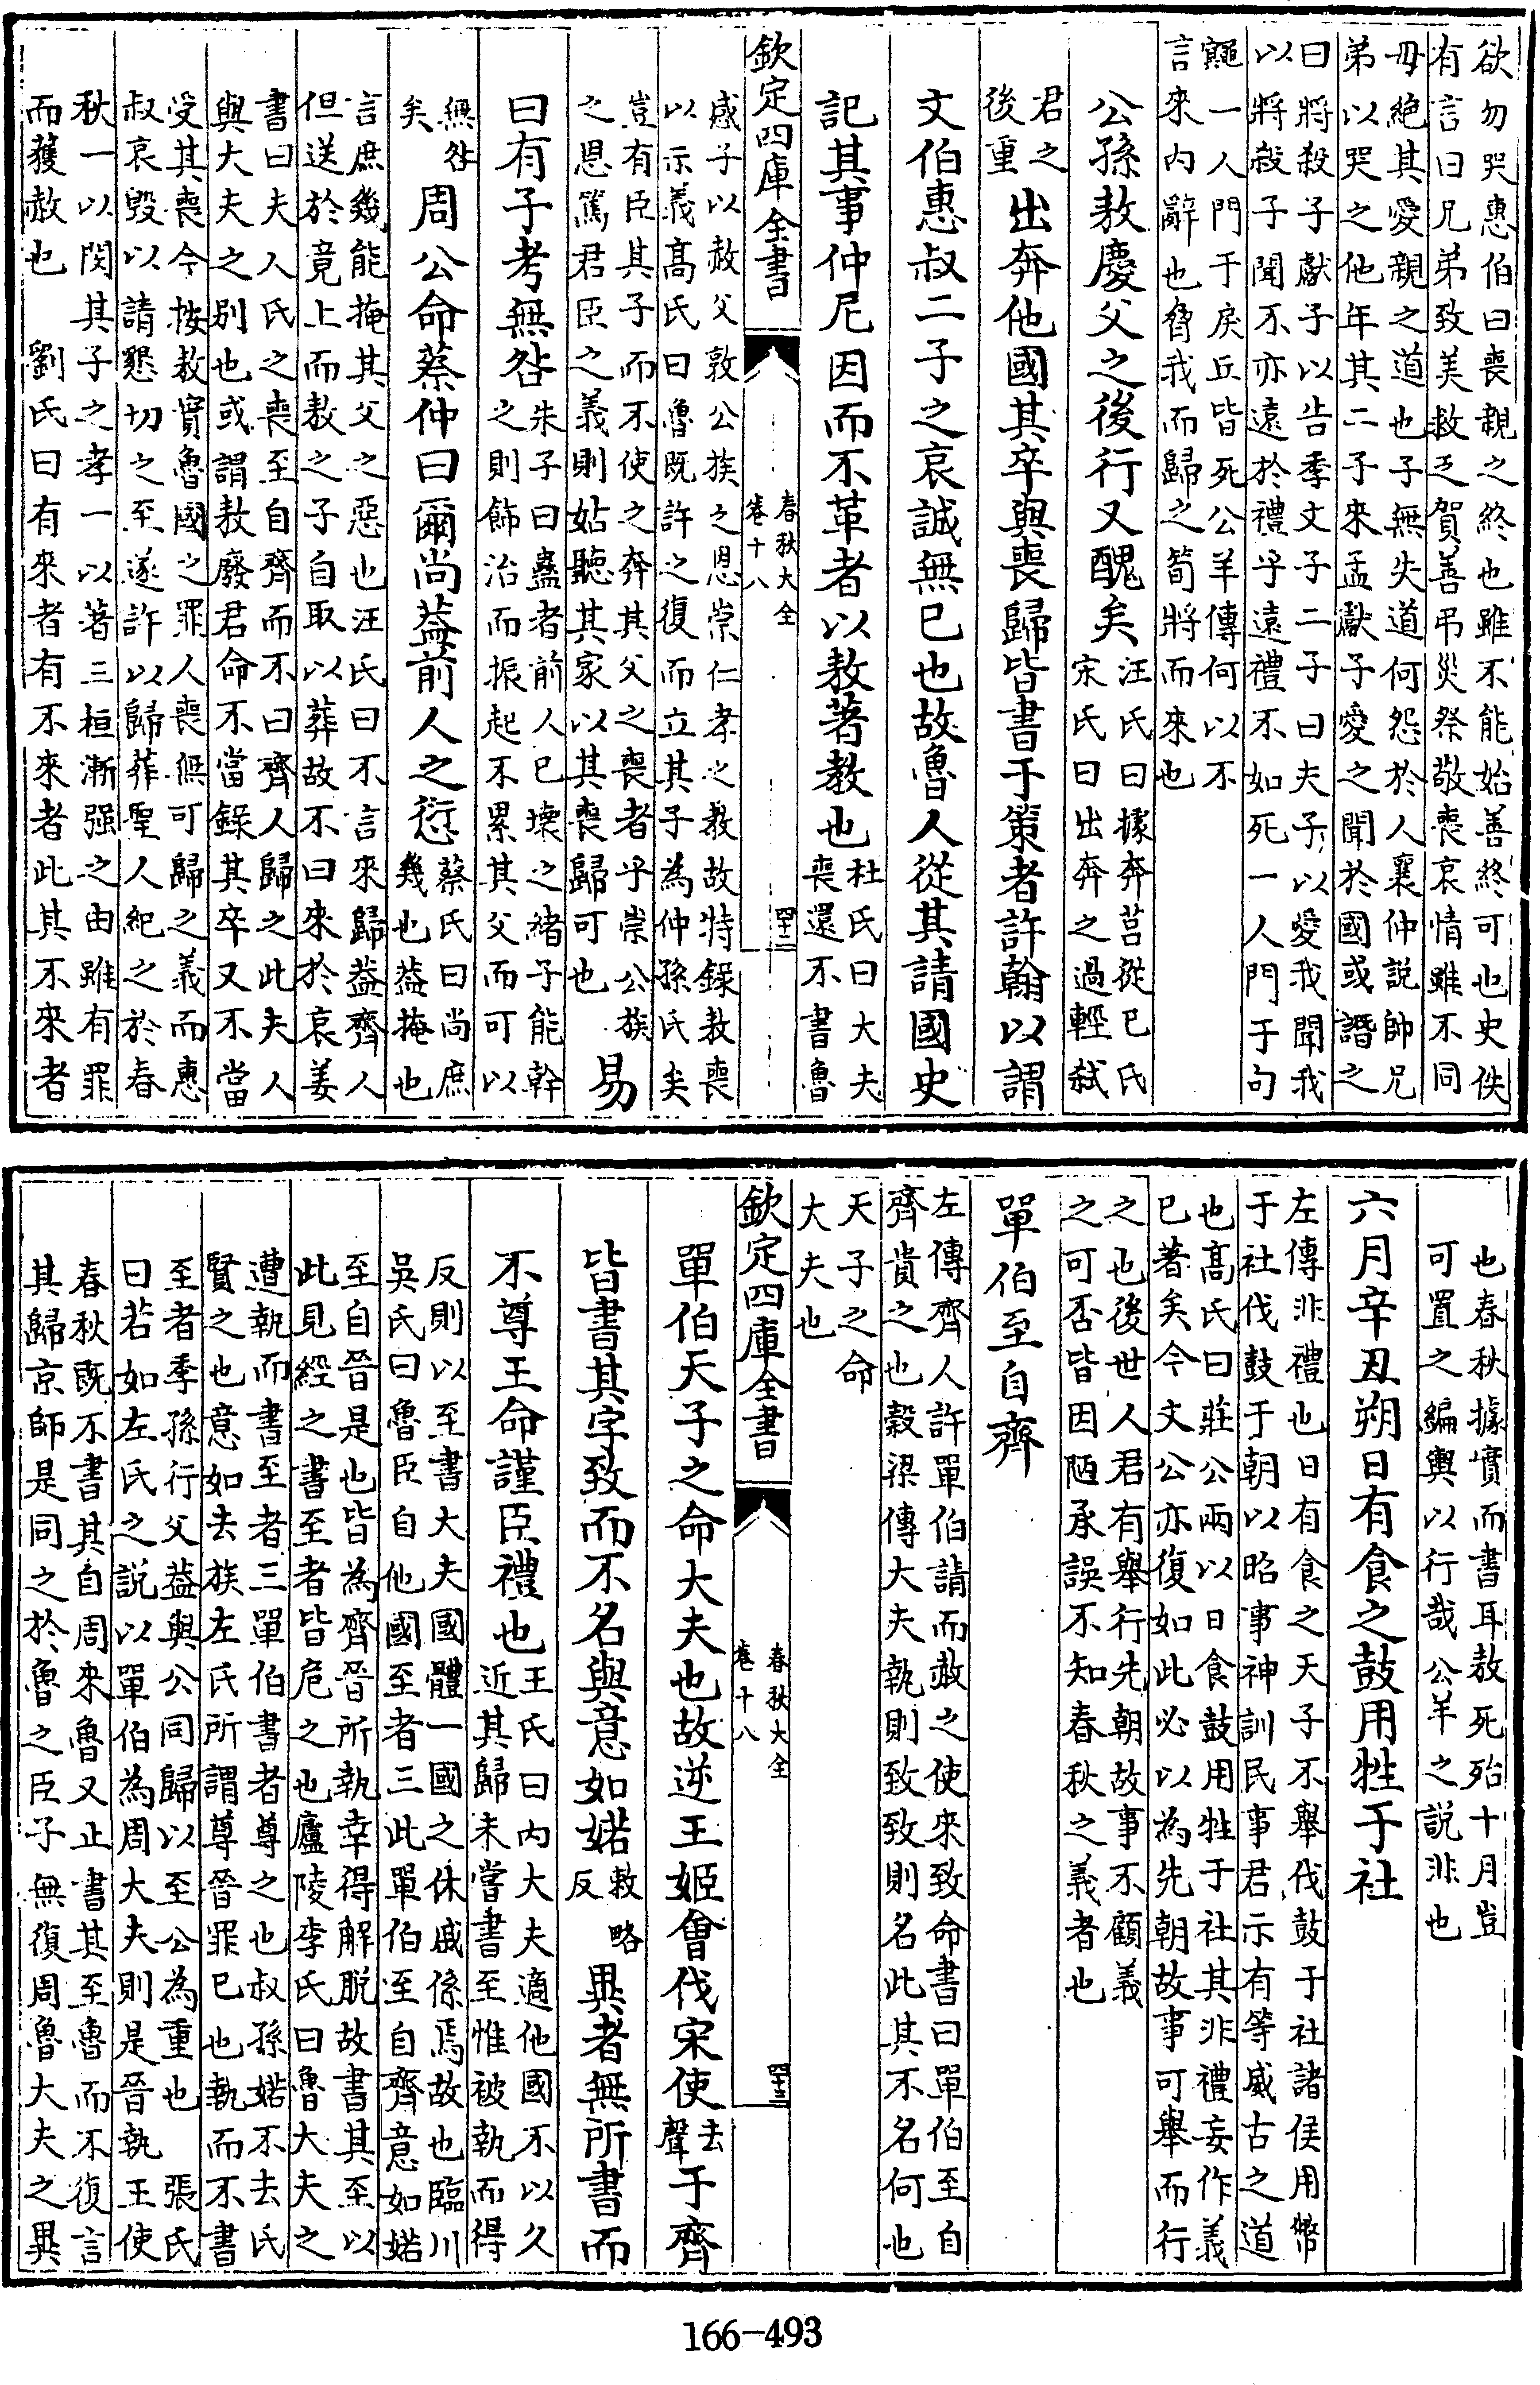 欲勿哭惠伯曰喪親之終也雖不能始善終可也史佚
有言曰兄弟致美救乏賀善弔災祭敬喪哀情雖不同
毋絶其愛親之道也子無失道何怨於人襄仲説帥兄
弟以哭之他年其二子來孟獻子愛之聞於國或譖之
曰將殺子獻子以告季文子二子曰夫子以愛我聞我
以將殺子聞不亦遠於禮乎遠禮不如死一人門于句
鼆一人門于戾丘皆死公羊傳何以不
言來内辭也脅我而歸之筍將而來也
公孫敖慶父之後行又醜矣
汪氏曰據奔莒從已氏
宋氏曰出奔之過輕弑
君之
後重
出奔他國其卒與喪歸皆書于策者許翰以謂
文伯惠叔二子之哀誠無已也故魯人從其請國史
記其事仲尼因而不革者以敖著教也
杜氏曰大夫
喪還不書魯
欽定四庫全書
春秋大全
卷十八
四十二
感子以赦父敦公族之恩崇仁孝之教故特錄敖喪
以示義髙氏曰魯既許之復而立其子為仲孫氏矣
豈有臣其子而不使之奔其父之喪者乎崇公族
之恩篤君臣之義則姑聽其家以其喪歸可也
易
曰有子考無咎
朱子曰蠱者前人已壞之緒子能幹
之則飾治而振起不累其父而可以
無咎
矣
周公命蔡仲曰爾尚葢前人之愆
蔡氏曰尚庶
幾也葢掩也
言庶幾能掩其父之惡也汪氏曰不言來歸葢齊人
但送於竟上而敖之子自取以葬故不曰來於哀姜
書曰夫人氏之喪至自齊而不曰齊人歸之此夫人
與大夫之别也或謂敖廢君命不當錄其卒又不當
受其喪今按敖實魯國之罪人喪無可歸之義而惠
叔哀毁以請懇切之至遂許以歸葬聖人紀之於春
秋一以閔其子之孝一以著三桓漸强之由雖有罪
而獲赦也　劉氏曰有來者有不來者此其不來者
也春秋據實而書耳敖死殆十月豈
可置之編輿以行哉公羊之説非也
六月辛丑朔日有食之鼓用牲于社
左傳非禮也日有食之天子不舉伐鼓于社諸侯用幣
于社伐鼓于朝以昭事神訓民事君示有等威古之道
也髙氏曰莊公兩以日食鼓用牲于社其非禮妄作義
已著矣今文公亦復如此必以為先朝故事可舉而行
之也後世人君有舉行先朝故事不顧義
之可否皆因陋承誤不知春秋之義者也
單伯至自齊
左傳齊人許單伯請而赦之使來致命書曰單伯至自
齊貴之也穀梁傳大夫執則致致則名此其不名何也
天子之命
大夫也
欽定四庫全書
春秋大全
卷十八
四十三
單伯天子之命大夫也故逆王姬會伐宋使
去
聲
于齊
皆書其字致而不名與意如婼
敕略
反
異者無所書而
不尊王命謹臣禮也
王氏曰内大夫適他國不以久
近其歸未嘗書至惟被執而得
反則以至書大夫國體一國之休戚係焉故也臨川
吳氏曰魯臣自他國至者三此單伯至自齊意如婼
至自晉是也皆為齊晉所執幸得解脱故書其至以
此見經之書至者皆危之也廬陵李氏曰魯大夫之
遭執而書至者三單伯書者尊之也叔孫婼不去氏
賢之也意如去族左氏所謂尊晉罪已也執而不書
至者季孫行父葢與公同歸以至公為重也　張氏
曰若如左氏之説以單伯為周大夫則是晉執王使
春秋既不書其自周來魯又止書其至魯而不復言
其歸京師是同之於魯之臣子無復周魯大夫之異
166-493